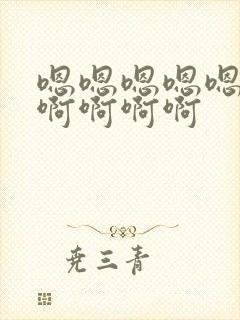 嗯嗯嗯嗯嗯
啊啊啊啊
尧三青